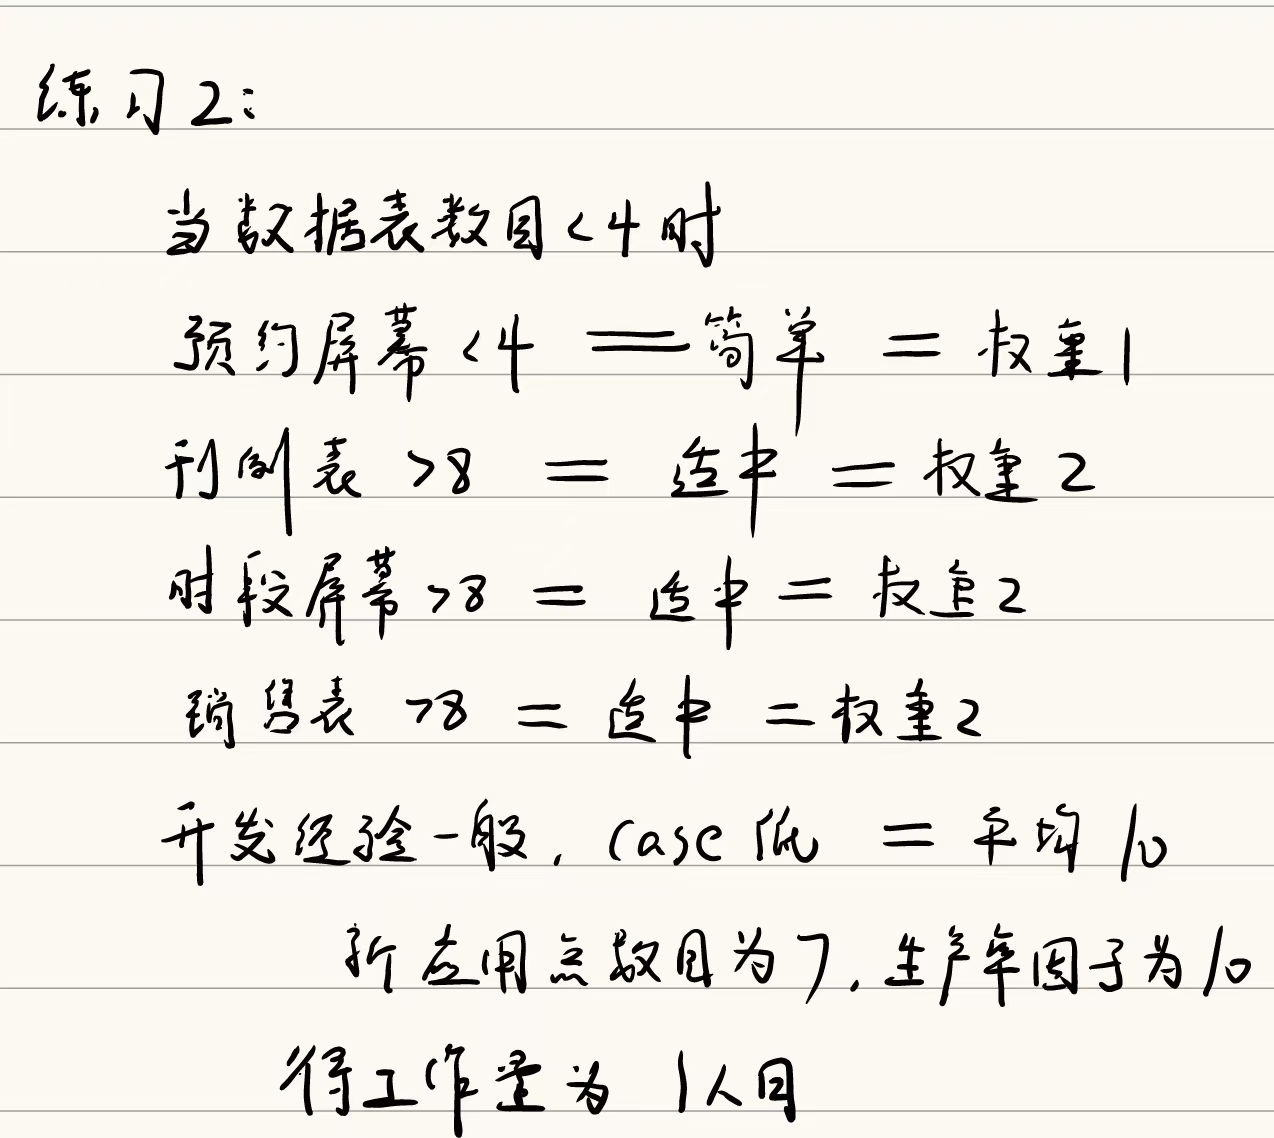 练习2:
当数据表数目<4时
预约屏幕<4 = 简单 = 权重1
刊例表 >8 = 适中 = 权重2
时段屏幕>8 = 适中 = 权重2
销售表 >8 = 适中 = 权重2
开发经验一般, case低 = 平均10
新应用点数目为7, 生产率因子为10
得工作量为 1人月